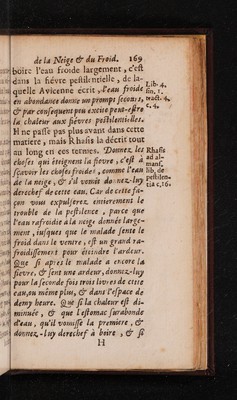 de la Neige & du Froid. 169
boire l'eau froide largement, c'est
dans la fiévre pestilentielle, de la-
quelle Avicenne écrit, l'eau froide
en abondance donne un prompt secours,
& par consequent peu excite peut-estre
la chaleur aux fiévres pestilentielles.
Il ne passe pas plus avant dans cette
matiere, mais Rhasis la décrit tout
au long en ces termes. Donnez les
choses qui éteignent la fievre, c'est à
sçavoir les choses froides, comme l'eau
de la neige, & s'il vomit donnez-luy
derechef de cette eau. Car de cette fa-
çon vous expulserez entierement le
trouble de la pestilence, parce que
l'eau rafroidie à la neige donnée large-
ment, jusques que le malade sente le
froid dans le ventre, est un grand ra-
froidissement pour éteindre l'ardeur.
Que si apres le malade a encore la
fievre, & sent une ardeur, donnez-luy
pour la seconde fois trois livres de cette
eau, ou même plus, & dans l'espace de
demy heure. Que si la chaleur est di-
minuée, & que l'estomac surabonde
d'eau, qu'il vomisse la premiere, &
donnez-luy derechef à boire, & si
H
Lib. 4.
fin. 1.
tract. 4.
c. 4.
Rhasis
ad al-
mans.
lib. de
pestilen-
tia c. 16.